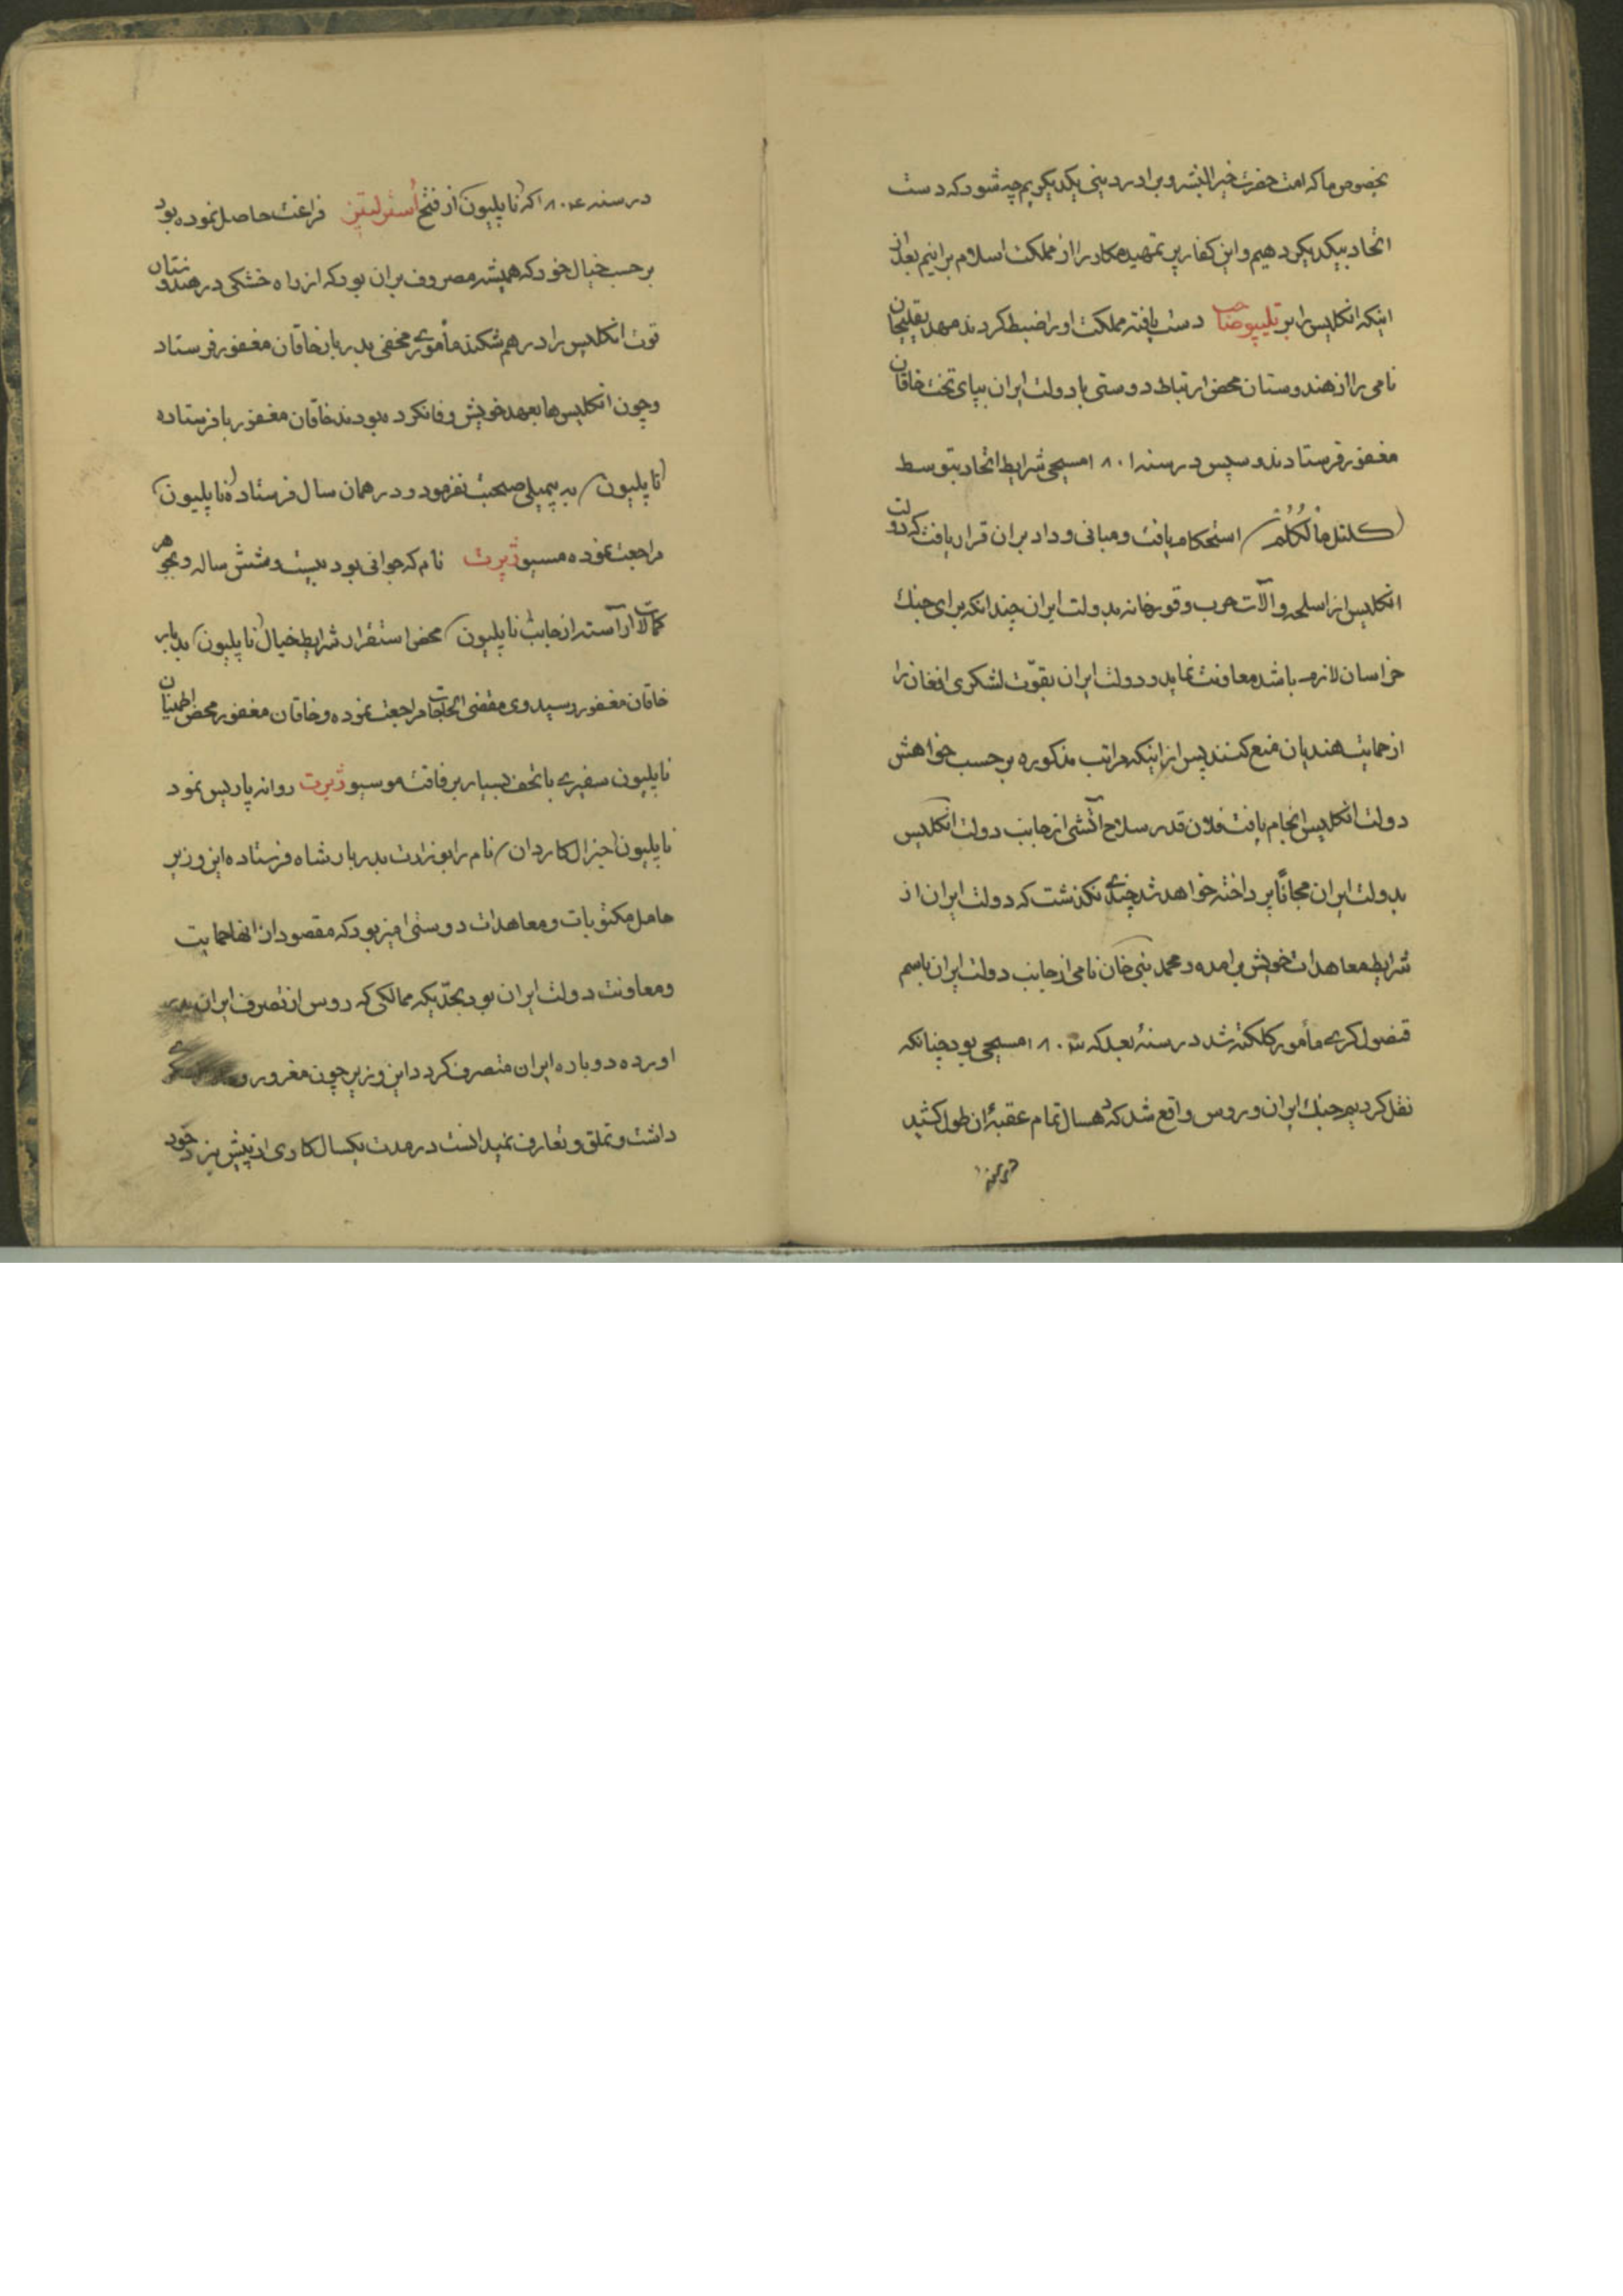 بخصوص ما که امت حضرت خیر البشر و برادر دینی یکدیگریم چه شود که دست
اتحاد بیکدیکر دهیم و این کفار پر تمهید مکار را از مملکت اسلام برانیم بعد از
اینکه انکلیس را بر تیلیپو صاحب دست یافته مملکت او را ضبط کردند مهدیقلیخان
نامی را از هندوستان محض ارتباط دوستی با دولت ایران بپای تخت خاقان
مغفور فرستادند و سپس در سنه ۱۸۰۱ مسیحی شرایط اتحاد بتوسط
(کلنل مالکُلُم) استحکام یافت و مبانی وداد بر ان قرار یافت که دولت
انکلیس از اسلحه و آلات حرب و قورخانه بدولت ایران چندانکه برای جنك
خراسان لازم باشد معاونت نماید و دولت ایران بقوّت لشکری افغان را
از حمایت هندیان منع کنند پس از اینکه مراتب مذکوره بر حسب خواهش
دولت انکلیس انجام یافت فلان قدر سلاح آتشی از جانب دولت انکلیس
بدولت ایران مجاناً پرداخته خواهد شد چندی نکذشت که دولت ایران از
شرایط معاهدات خویش برامده و محمد نبی خان نامی از جانب دولت ایران باسم
قنصول کری مأمور کلکته شد در سنهٔ بعد که ۱۸۰۳ مسیحی بود چنانکه
نقل کردیم جنك ایران و روس واقع شد که دهسال تمام عقبهٔ ان طول کشید
در سنه ۱۸۰۴ که (ناپلیون) از فتح اُسترلیتز فراغت حاصل نموده بود
بر حسب خیال خود که همیشه مصروف بران بود که از راه خشکی در هندوستان
قوت انکلیس را درهم شکند مأموری مخفی بدربار خاقان مغفور فرستاد
و چون انکلیس‌ها بعهد خویش وفا نکرده بودند خاقان مغفور با فرستاده
(ناپلیون) به بیمیلی صحبت نفرمود و در همان سال فرستاده (ناپلیون)
مراجعت نموده مسیو ژبرت نام که جوانی بود بیست و شش ساله و بجوهر
کمالات آراسته از جانب (ناپلیون) محض استقرار شرایط خیال (ناپلیون) بدربار
خاقان مغفور رسید وی مقضی الحاجات مراجعت نموده و خاقان مغفور محض اطمینان
ناپلیون سفیری با تحف بسیار برفاقت موسیو ژبرت روانه پاریس نمود
ناپلیون (جنرال کاردان) نام را بوزارت بدربار شاه فرستاده این وزیر
حامل مکتوبات و معاهدات دوستی امیز بود که مقصود از انها حمایت
و معاونت دولت ایران بود بحدّیکه ممالکی که روس از تصرف ایران بدر
اورده دوباره ایران متصرف کردد این وزیر چون مغرور و
داشت و تملق و تعارف نمیدانست در مدت یکسال کاری از پیش نبرد خود